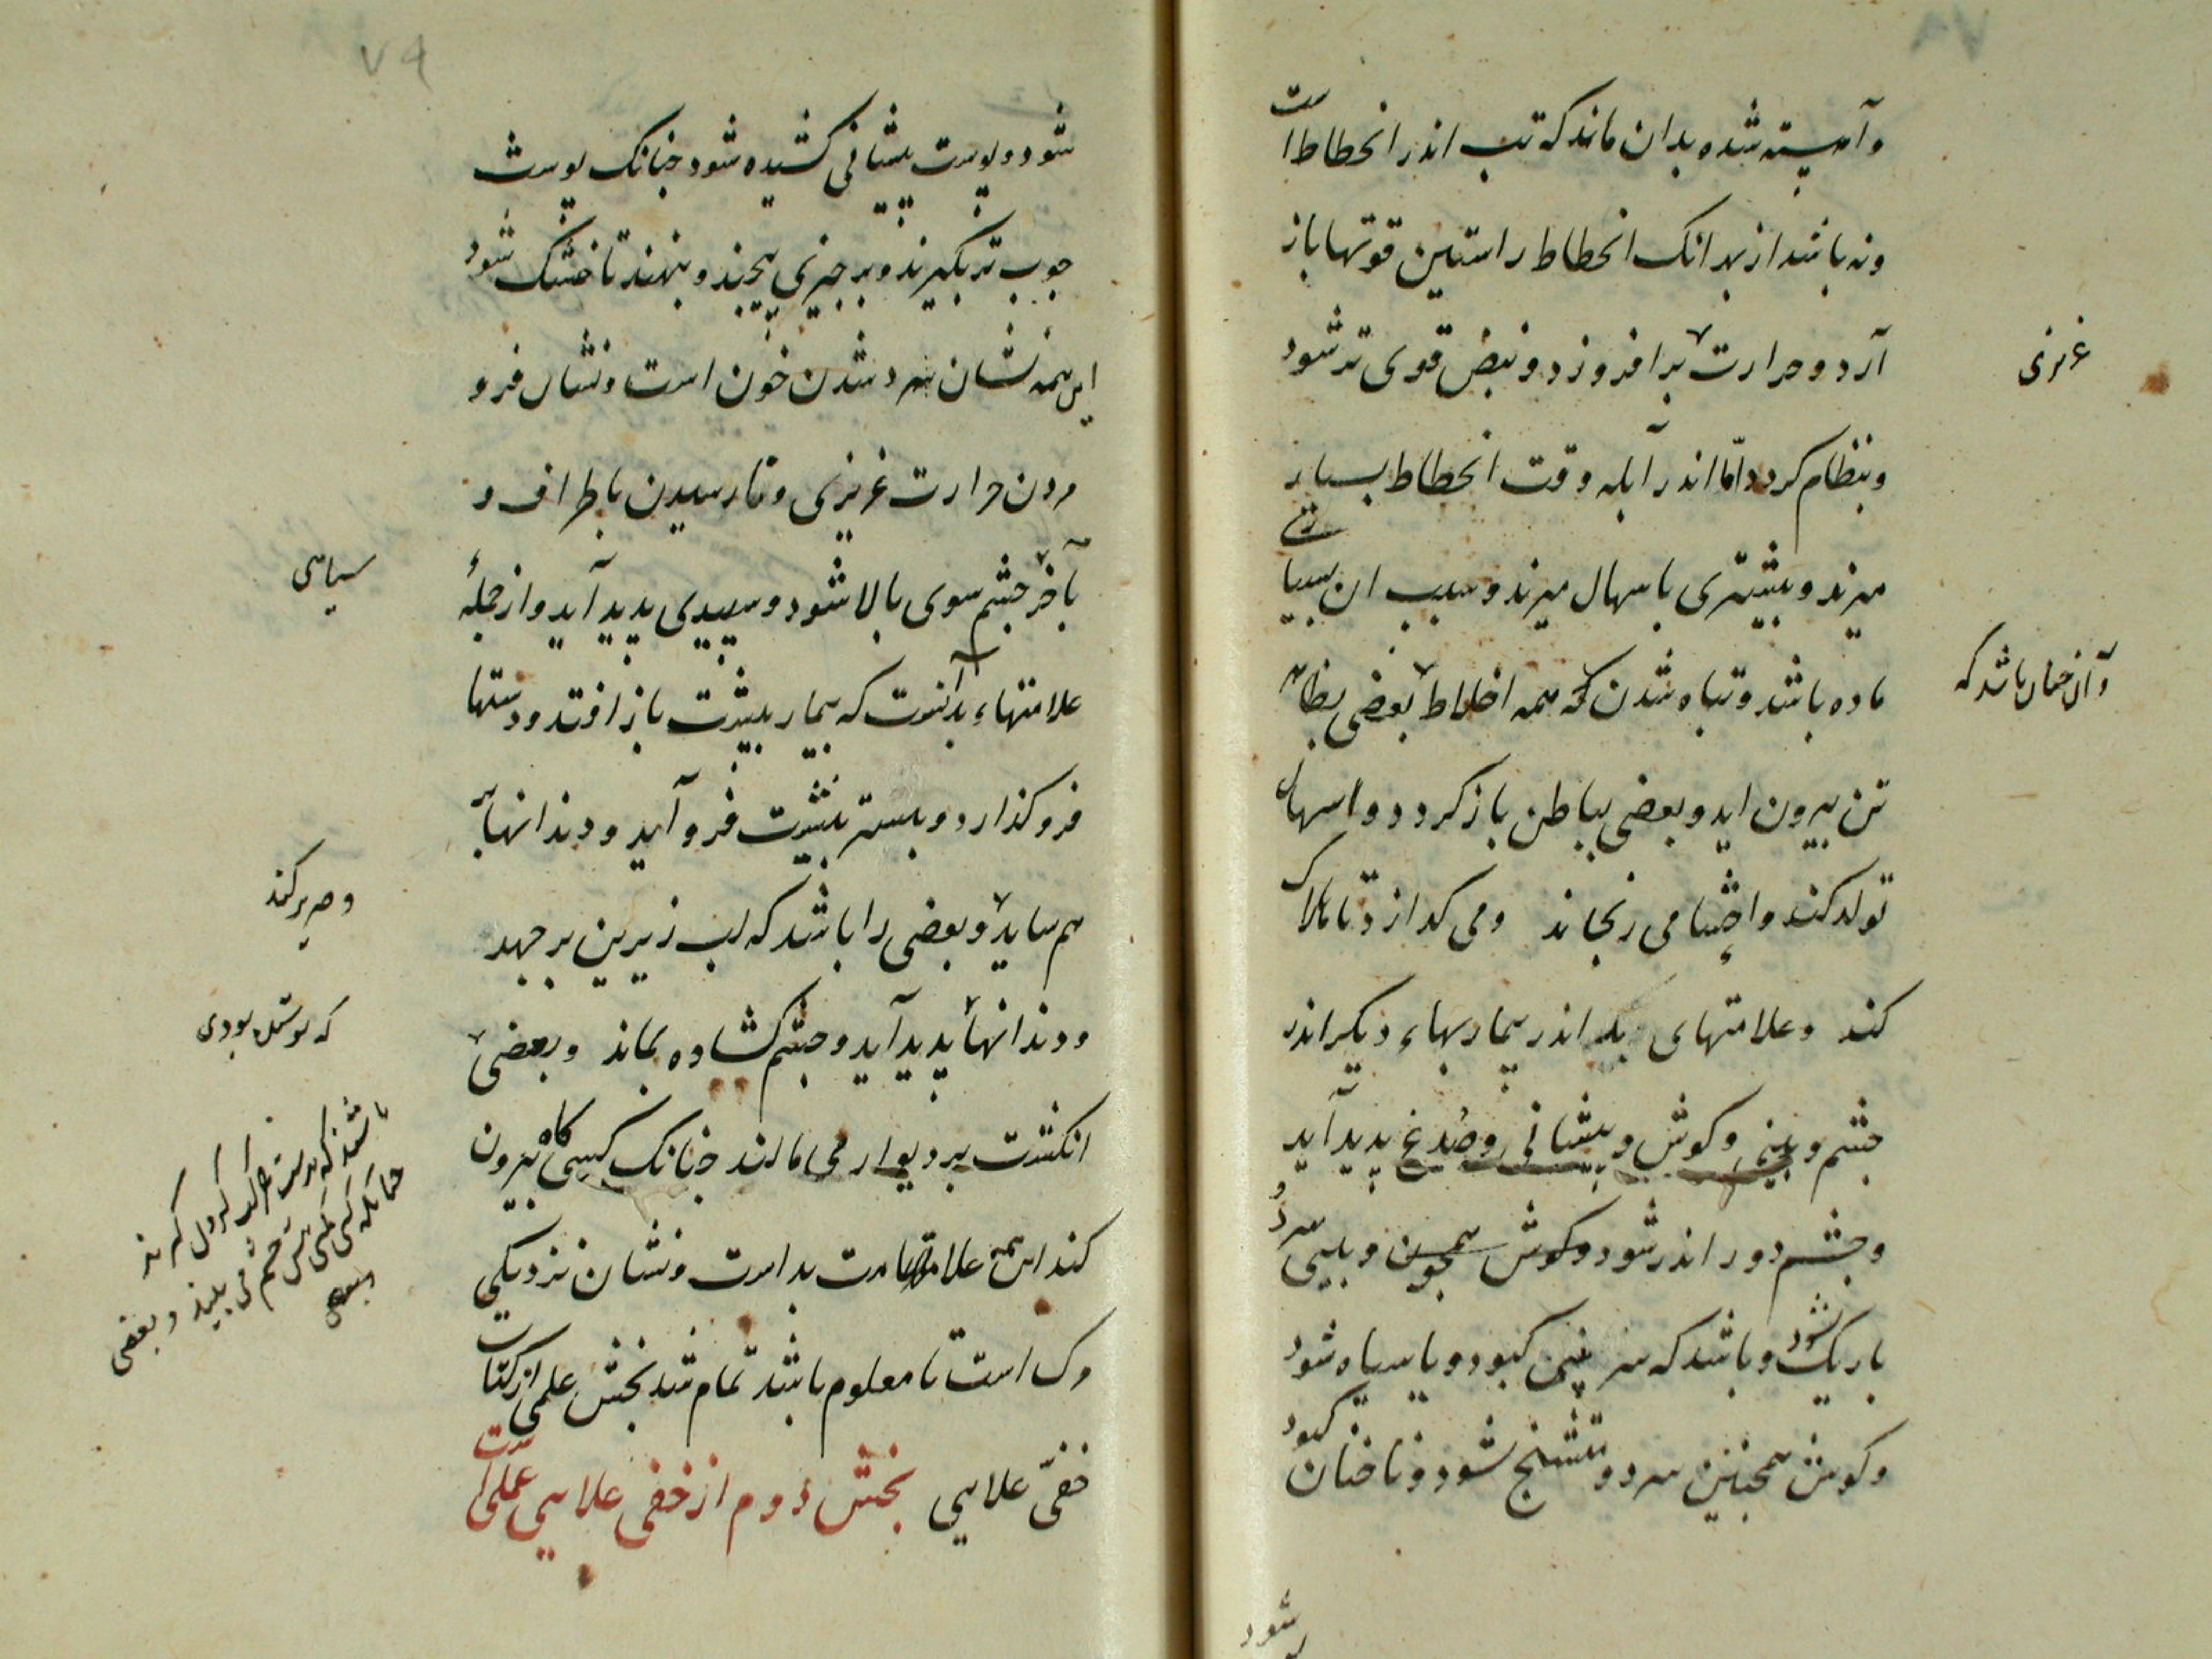 ۷۸
وآهسته شده بدان ماند که تب اندر انحطاط است
ونه باشد از بهر انک انحطاط راستین قوتها باز
آرد و حرارت برافروزد و نبض قوی تر شود
غریزی
وبنظام کردد امّا اندر آبله وقت انحطاط بسیار
میرند و بیشتری باسهال میرند و سبب ان بسیاری
ماده باشد و تباه شدن همه اخلاط بعضی بظاهر
وآن چنان باشد که
تن بیرون اید و بعضی بباطن باز کردد و اسهال
تولد کند و احشا می رنجاند ومی کدازد تا هلاک
کند وعلامتهای بد اندر بیماریهاء دیکر اندر
چشم و بینی و کوش و پیشانی و صُدغ پدید آید
وچشم دور اندر شود و کوش همچون و بینی سرد
باریک شود و باشد که سر بینی کبود و یا سیاه شود
وکوش همچنین سرد و متشنج شود و ناخنان کبود
شود
۷۹
شود و پوست پیشانی کشیده شود جنانک پوست
جوب تر بکیرند و بر چیزی پیچند و بنهند تا خشک شود
این همه نشان سرد شدن خون است و نشان فرو
مردن حرارت غریزی و نارسیدن باطراف و
بآخر چشم سوی بالا شود و سپیدی پدید آید و از جملهٔ
سیاهی
علامتهاء بد آنست که بیمار بپشت باز افتد و دستها
فرو کذارد و بستر بپشت فرو آید و دندانها بر
هم ساید و بعضی را باشد که لب زیرین بر جهد
وصریر کند
ودندانها پدید آید و چشم کشاده بماند وبعضی
که بوشیده بودی
انکشت بر دیوار می مالند جنانک کسی کاه بیرون
باشد که بدست
جنانک کسی مکس بیش چشم می بیند و بعضی
کند این همه علامت بد است و نشان نزدیکی
مرک است تا معلوم باشد تمام شد بخش علمی از کتاب
خفیّ علایی بخش دوم از خفی علایی عملی است